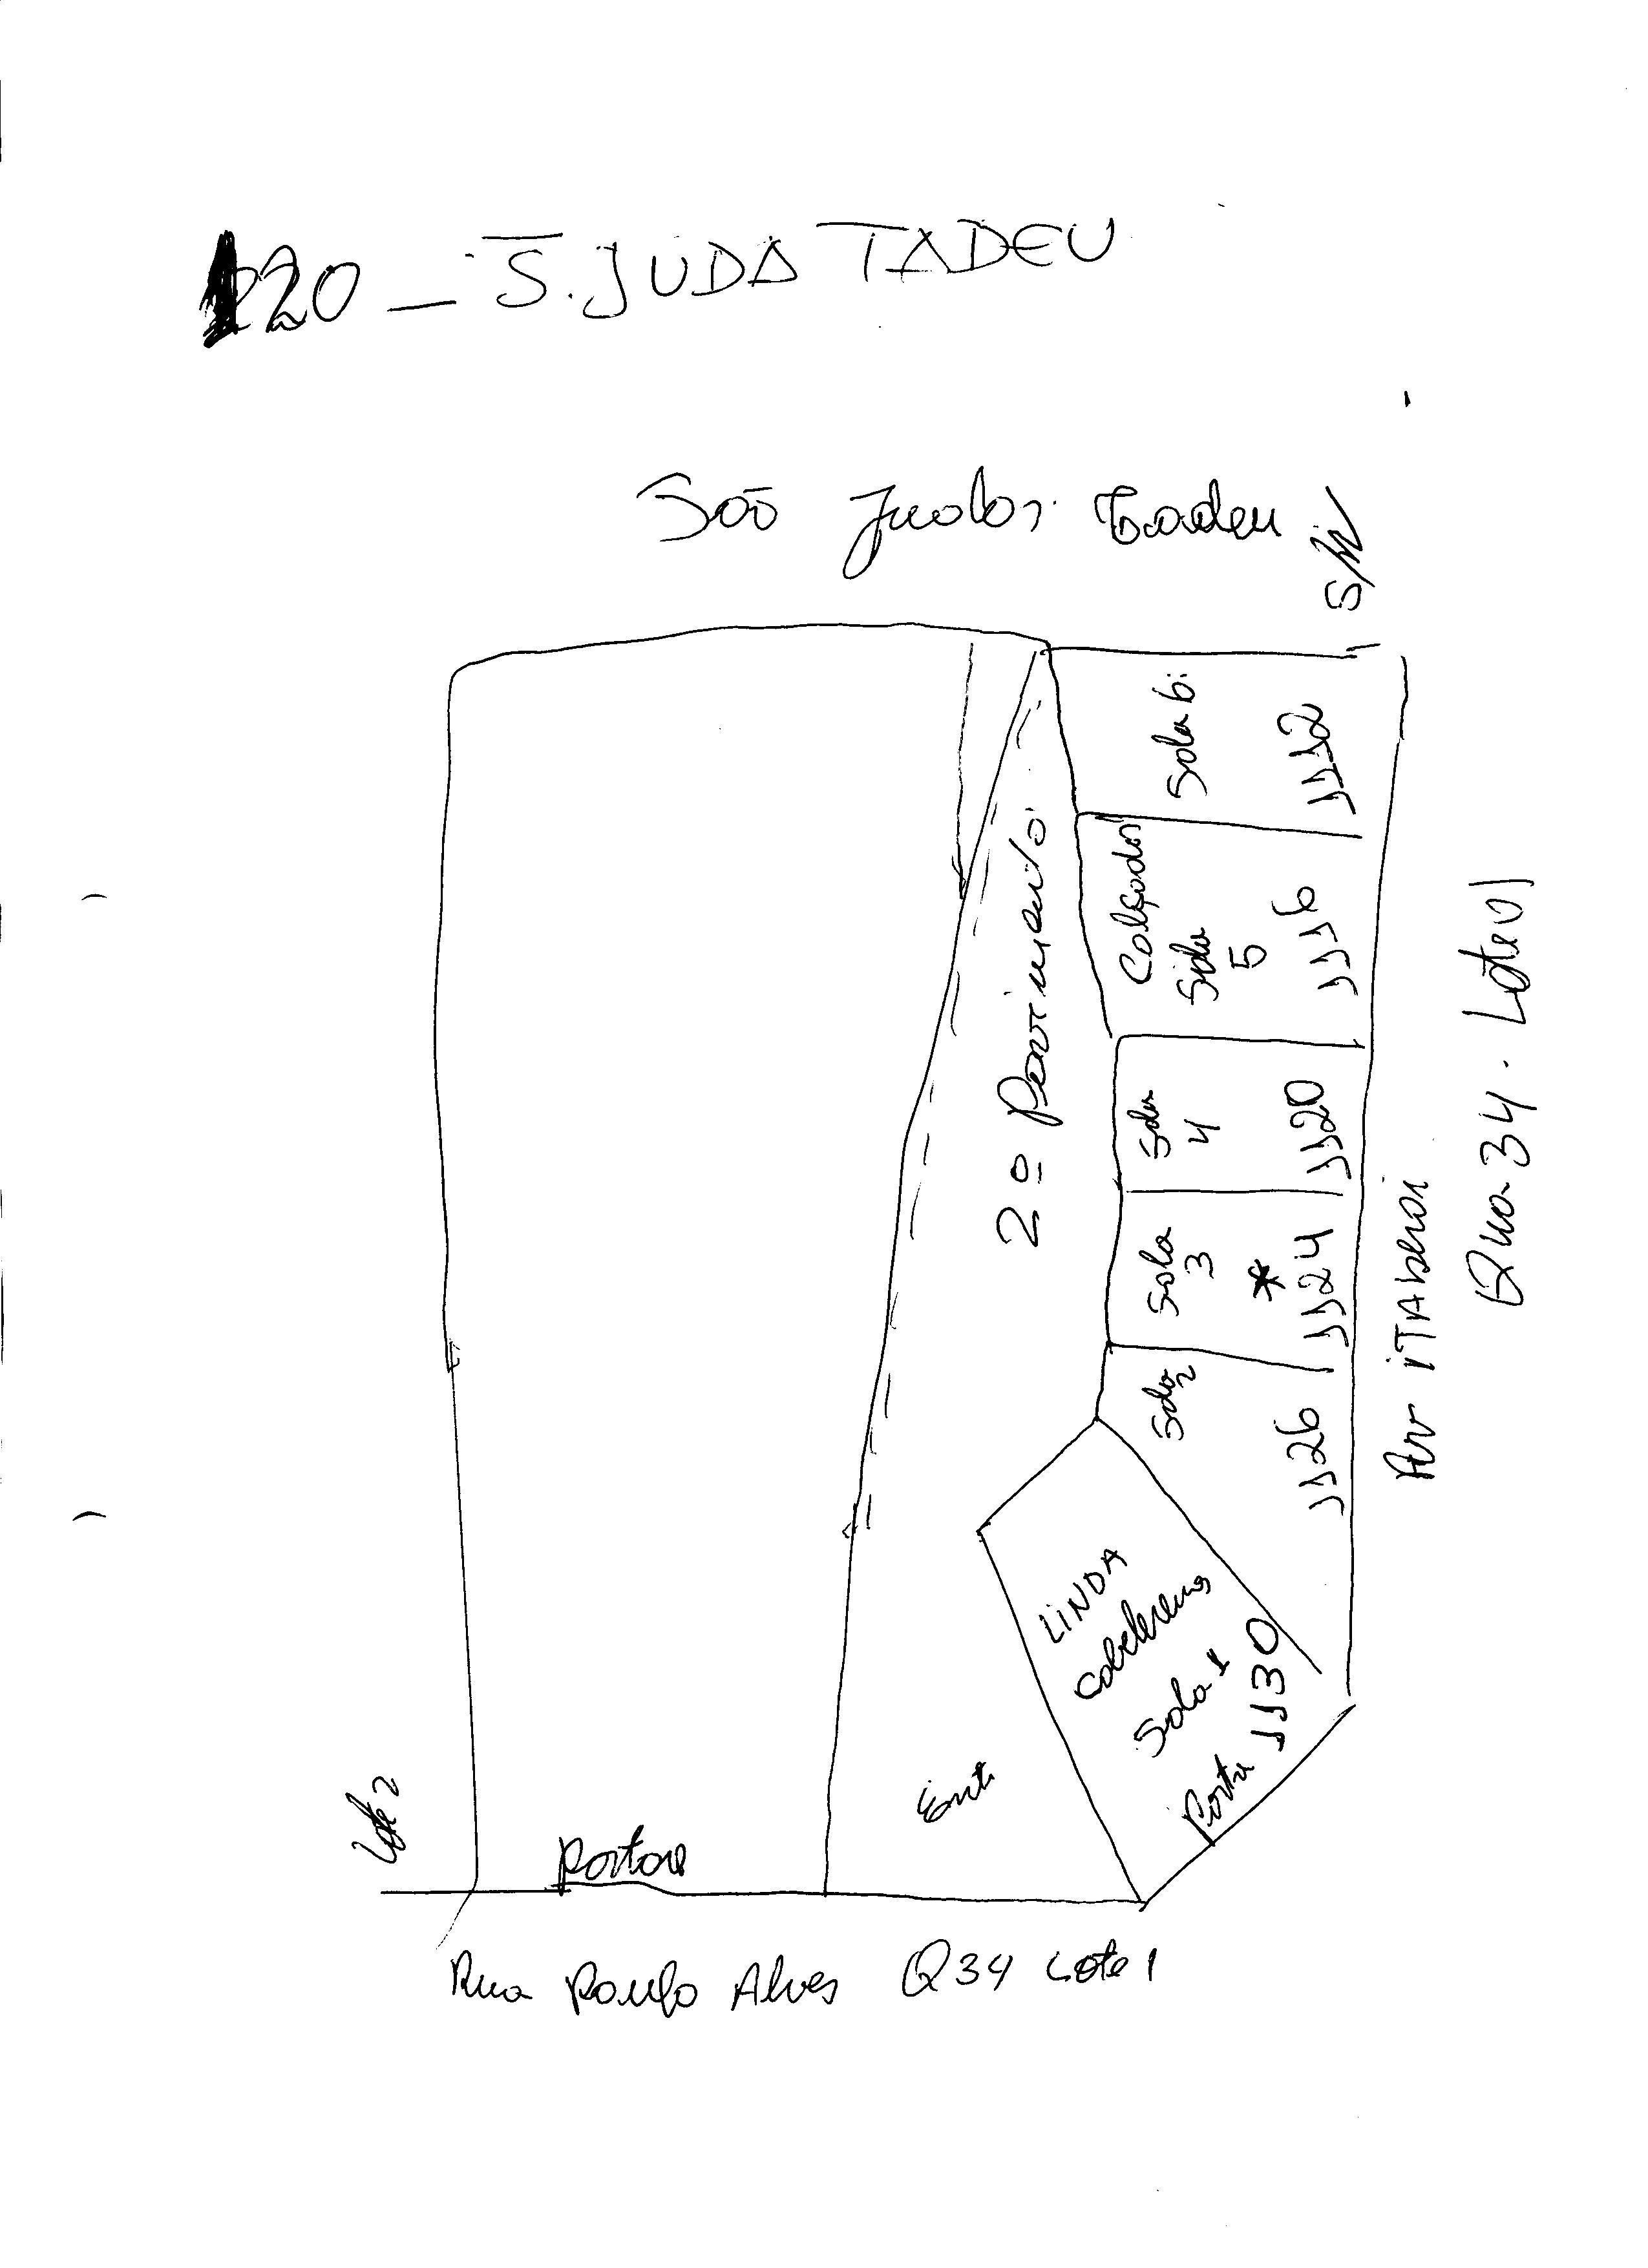 120 - S. JUDA TADEU
São Judas Tadeu
S/N
Sala 6:
1112
Calçados
Sala
5
1116
Sala
4
1120
Sala
3
*
1124
Sala 2
1126
2º Pavimento
LINDA
Sala 1
Porta 1130
Ent.
Av ITAberai
Qua 34. Lote 01
Lote 2
Portão
Rua Paulo Alves Q34 Lote 1